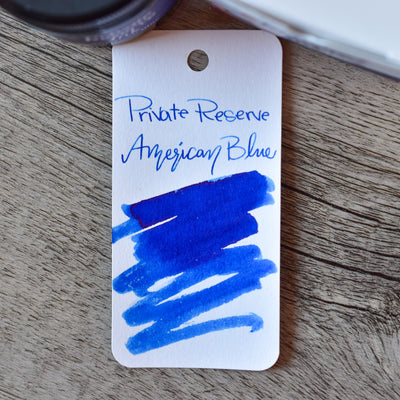 Private Reserve
American Blue